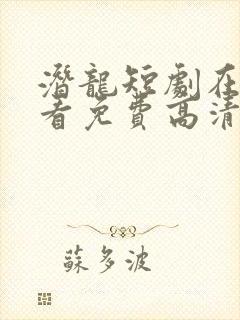 潛龍短劇在
看免費高清
蘇多波